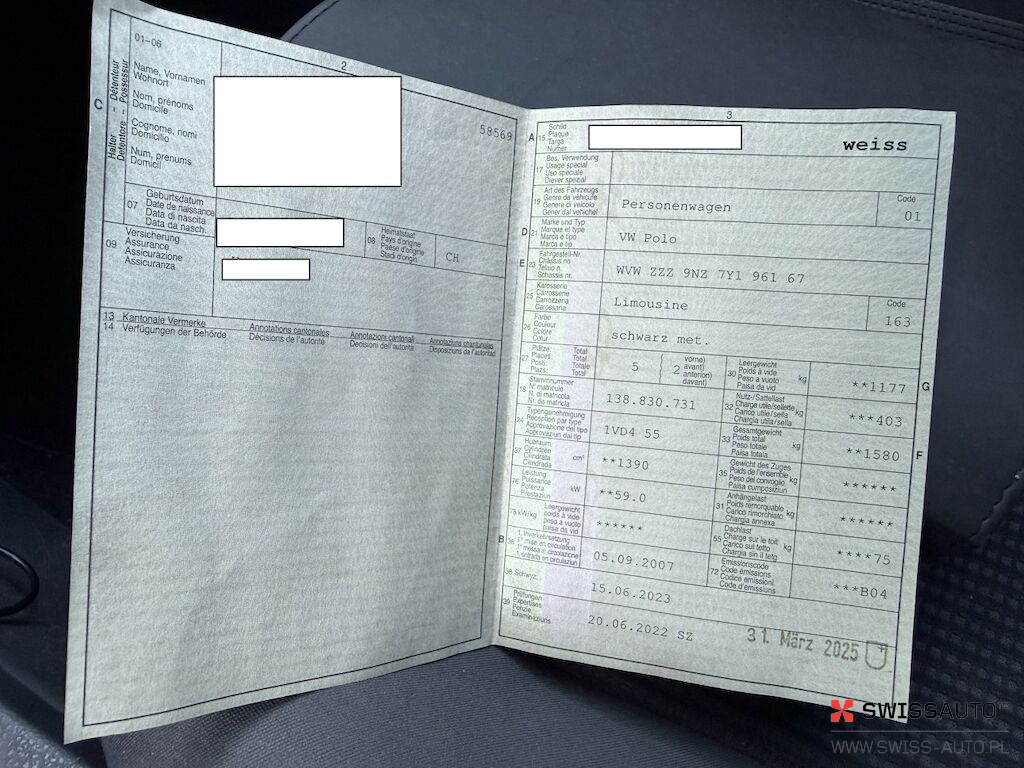 01–06
2
C
Halter – Détenteur
Detentore – Possessur
Name, Vornamen
Wohnort
Nom, prénoms
Domicile
Cognome, nomi
Domicilio
Num, prenums
Domicil
58569
07
Geburtsdatum
Date de naissance
Data di nascita
Data da nasch.
08
Heimatstaat
Pays d'origine
Paese d'origine
Stadi d'origin
CH
09
Versicherung
Assurance
Assicurazione
Assicuranza
13 Kantonale Vermerke
14 Verfügungen der Behörde
Annotations cantonales
Décisions de l'autorité
Annotazioni cantonali
Decisioni dell'autorità
Annotaziuns chantunalas
Disposiziuns da l'autoritad
3
A 15
Schild
Plaque
Targa
Numer
weiss
17
Bes. Verwendung
Usage spécial
Uso speciale
Diever spezial
19
Art des Fahrzeugs
Genre de véhicule
Genere di veicolo
Gener dal vehichel
Personenwagen
Code
01
D 21
Marke und Typ
Marque et type
Marca e tipo
Marca e tip
VW Polo
E 23
Fahrgestell-Nr.
Châssis no
Telaio n.
Schassis nr.
WVW ZZZ 9NZ 7Y1 961 67
25
Karosserie
Carrosserie
Carrozzeria
Carossaria
Limousine
Code
163
26
Farbe
Couleur
Colore
Colur
schwarz met.
27
Plätze: Total
Places: Total
Posti: Totale
Plazs: Total
5
2
vorne)
avant)
anteriori)
davant)
30
Leergewicht
Poids à vide
Peso a vuoto
Paisa da vid
kg
**1177
G
18
Stammnummer
N° matricule
N. di matricola
Nr. da matricla
138.830.731
32
Nutz-/Sattellast
Charge utile/sellette
Carico utile/sella
Chargia utila/sella
kg
***403
24
Typengenehmigung
Réception par type
Approvazione del tipo
Approvaziun dal tip
1VD4 55
33
Gesamtgewicht
Poids total
Peso totale
Paisa totala
kg
**1580
F
37
Hubraum
Cylindrée
Cilindrata
Cilindrada
cm³
**1390
35
Gewicht des Zuges
Poids de l'ensemble
Peso del convoglio
Paisa cumposiziun
kg
******
76
Leistung
Puissance
Potenza
Prestaziun
kW
**59.0
31
Anhängelast
Poids remorquable
Carico rimorchiato
Chargia annexa
kg
******
78 kW/kg
Leergewicht
poids à vide
peso a vuoto
paisa da vid
******
55
Dachlast
Charge sur le toit
Carico sul tetto
Chargia sin il tetg
kg
****75
B
36
1. Inverkehrsetzung
1re mise en circulation
1a messa in circolazione
1. entrada en circulaziun
05.09.2007
72
Emissionscode
Code émissions
Codice emissioni
Code d'emissiuns
***B04
38 Schwyz,
15.06.2023
39
Prüfungen
Expertises
Perizie
Examinaziuns
20.06.2022 SZ
31. März 2025
SWISSAUTO
WWW.SWISS-AUTO.PL